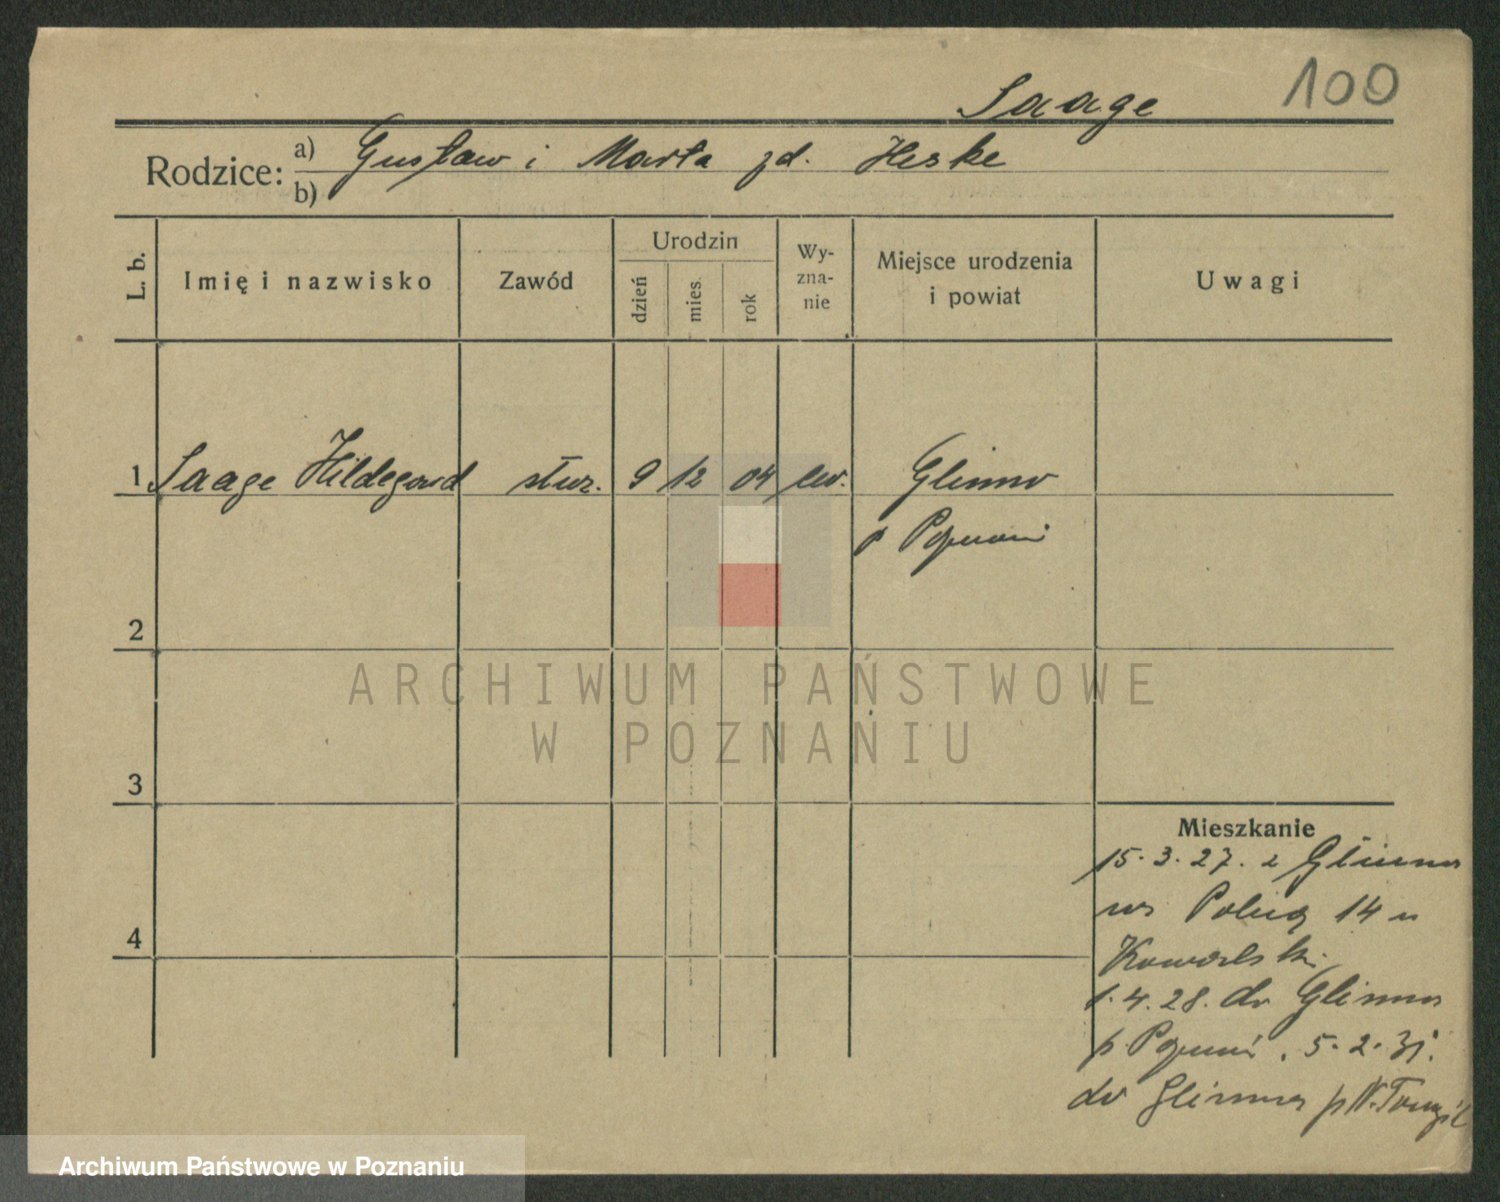 100
Saage
Rodzice: a) Gustaw i Marta zd. Heske
b)
L. b.
Imię i nazwisko
Zawód
Urodzin
dzień
mies.
rok
Wy-
zna-
nie
Miejsce urodzenia
i powiat
Uwagi
1 Saage Hildegard służ. 9 12 04 ew. Glinno
p Poznań
2
3
4
Mieszkanie
15.3.27. z Glinna
14 u
Kowalski
1.4.28. do Glinna
p Poznań. 5.2.31.
do Glinna p N. Tomyśl
ARCHIWUM PAŃSTWOWE
W POZNANIU
Archiwum Państwowe w Poznaniu